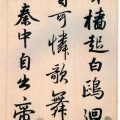 牙檣起白鷗迴
首可憐歌舞
秦中自古帝